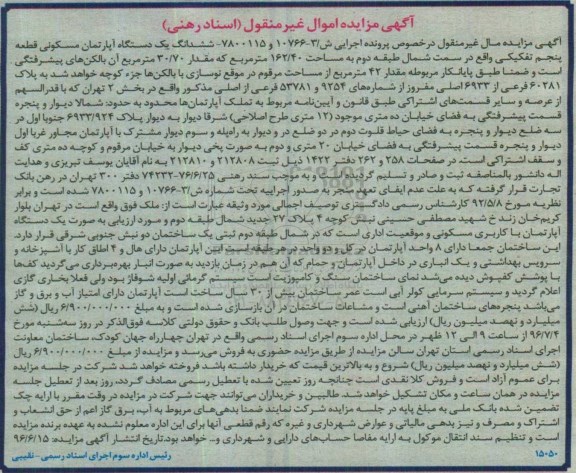 آگهی مزایده اموال غیر منقول (اسناد رهنی)
آگهی مزایده مال غیر منقول در خصوص پرونده اجرایی ش/۳-۱۰۷۶۶ و ۷۸۰۰۱۱۵- ششدانگ یک دستگاه آپارتمان مسکونی قطعه
پنجم تفکیکی واقع در سمت شمال طبقه دوم به مساحت ۱۶۲/۴۰ مترمربع که مقدار ۳۰/۷۰ مترمربع آن بالکن‌های پیشرفتگی
است و ضمنا طبق پایانکار مربوطه مقدار ۴۲ مترمربع از مساحت مرقوم در موقع نوسازی با بالکن‌ها جزء کوچه خواهد شد به پلاک
۶۰۲۸۱ فرعی از ۶۹۳۳ اصلی مفروز از شماره‌های ۹۲۵۴ و ۵۳۷۸۱ فرعی از اصلی مذکور واقع در بخش ۲ تهران که با قدرالسهم
از عرصه و سایر قسمت‌های اشتراکی طبق قانون و آیین‌نامه مربوط به تملک آپارتمان‌ها محدود به حدود: شمالا دیوار و پنجره
قسمت پیشرفتگی به فضای خیابان ده متری موجود (۱۲ متری طرح اصلاحی) شرقا دیوار به دیوار پلاک ۶۹۳۳/۹۲۴ جنوبا اول در
سه ضلع دیوار و پنجره به فضای حیاط خلوت دوم در دو ضلع در و دیوار به راه‌پله و سوم دیوار مشترک با آپارتمان مجاور غربا اول
دیوار و پنجره قسمت پیشرفتگی به فضای خیابان ۲۰ متری و دوم به صورت پخی دیوار به خیابان مرقوم و کوچه ده متری کف
و سقف اشتراکی است. در صفحات ۲۵۸ و ۲۶۲ دفتر ۱۴۲۲ ذیل ثبت ۲۱۲۸۰۸ و ۲۱۲۸۱۰ به نام آقایان یوسف تبریزی و هدایت
اله دانشور بالمناصفه ثبت و صادر و تسلیم گردیده است و به موجب سند رهنی ۷۶/۶/۲۵-۷۴۲۳۲ دفتر ۳۰۰ تهران در رهن بانک
تجارت قرار گرفته که به علت عدم ایفای تعهد منجر به صدور اجراییه تحت شماره ش/۳-۱۰۷۶۶ و ۷۸۰۰۱۱۵ شده است و برابر
نظریه مورخ ۹۲/۵/۸ کارشناس رسمی دادگستری توصیف اجمالی مورد وثیقه عبارت است از: ملک فوق واقع است در تهران بلوار
کریم‌خان زند خ شهید مصطفی حسینی نبش کوچه ۴ پلاک ۲۷ جدید شمال طبقه دوم و مورد ارزیابی به صورت یک دستگاه
آپارتمان با کاربری مسکونی و موقعیت اداری است که در شمال طبقه دوم ثبتی یک ساختمان دو نبش جنوبی شرقی قرار دارد.
این ساختمان جمعا دارای ۸ واحد آپارتمان در کل و دو واحد در هر طبقه است این آپارتمان دارای هال و ۴ اطاق کار با آشپزخانه و
سرویس بهداشتی و یک انباری در داخل آپارتمان و حمام که آن هم در زمان بازدید به صورت انبار بهره‌برداری می‌گردید کف‌ها
با پوشش کفپوش دیده می‌شد نمای ساختمان سنگ و کامپوزیت است سیستم گرمائی اولیه شوفاژ بود ولی فعلا بخاری گازی
اعلام گردید و سیستم سرمایی کولر آبی است عمر ساختمان بیش از ۳۰ سال ساخت است آپارتمان دارای امتیاز آب و برق و گاز
می‌باشد پنجره‌های ساختمان آهنی است و مشاعات ساختمان در آن بازسازی شده است و به مبلغ ۶/۹۰۰/۰۰۰/۰۰۰ ریال (شش
میلیارد و نهصد میلیون ریال) ارزیابی شده است و جهت وصول طلب بانک و حقوق دولتی کلاسه فوق‌الذکر در روز سه‌شنبه مورخ
۹۶/۷/۴ از ساعت ۹ الی ۱۲ ظهر در محل اداره سوم اجرای اسناد رسمی واقع در تهران چهارراه جهان کودک، ساختمان معاونت
اجرای اسناد رسمی استان تهران سالن مزایده از طریق مزایده حضوری به فروش می‌رسد و مزایده از مبلغ ۶/۹۰۰/۰۰۰/۰۰۰ ریال
(شش میلیارد و نهصد میلیون ریال) شروع و به بالاترین قیمت که خریدار داشته باشد فروخته خواهد شد شرکت در جلسه مزایده
برای عموم آزاد است و فروش کلا نقدی است چنانچه روز تعیین شده با تعطیل رسمی مصادف گردد، روز بعد از تعطیل جلسه
مزایده در همان ساعت و مکان تشکیل خواهد شد. طالبین و خریداران می‌توانند جهت شرکت در مزایده در وقت مقرر با ارایه چک
تضمین شده بانک ملی به مبلغ پایه در جلسه مزایده شرکت نمایند ضمنا بدهی‌های مربوط به آب، برق گاز اعم از حق انشعاب و
اشتراک و مصرف و نیز بدهی مالیاتی و عوارض شهرداری و غیره که رقم قطعی آنها برای این اداره معلوم نشده به عهده برنده مزایده
است و تنظیم سند انتقال موکول به ارایه مفاصا حساب‌های دارایی و شهرداری و... خواهد بود. تاریخ انتشار آگهی مزایده: ۹۶/۶/۱۵
۱۵۰۵۰ رئیس اداره سوم اجرای اسناد رسمی - نقیبی